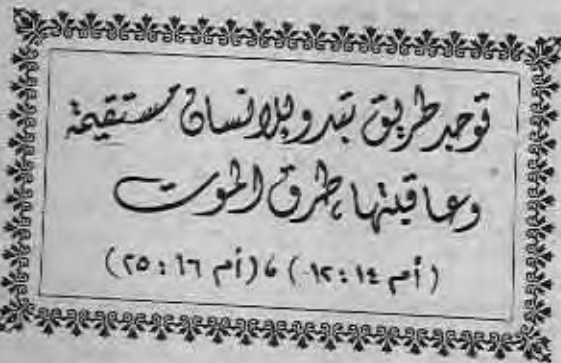 توجد طريق تبدو للإنسان مستقيمة
وعاقبتها طرق الموت
(أم ١٤ : ١٢) ، (أم ١٦ : ٢٥)